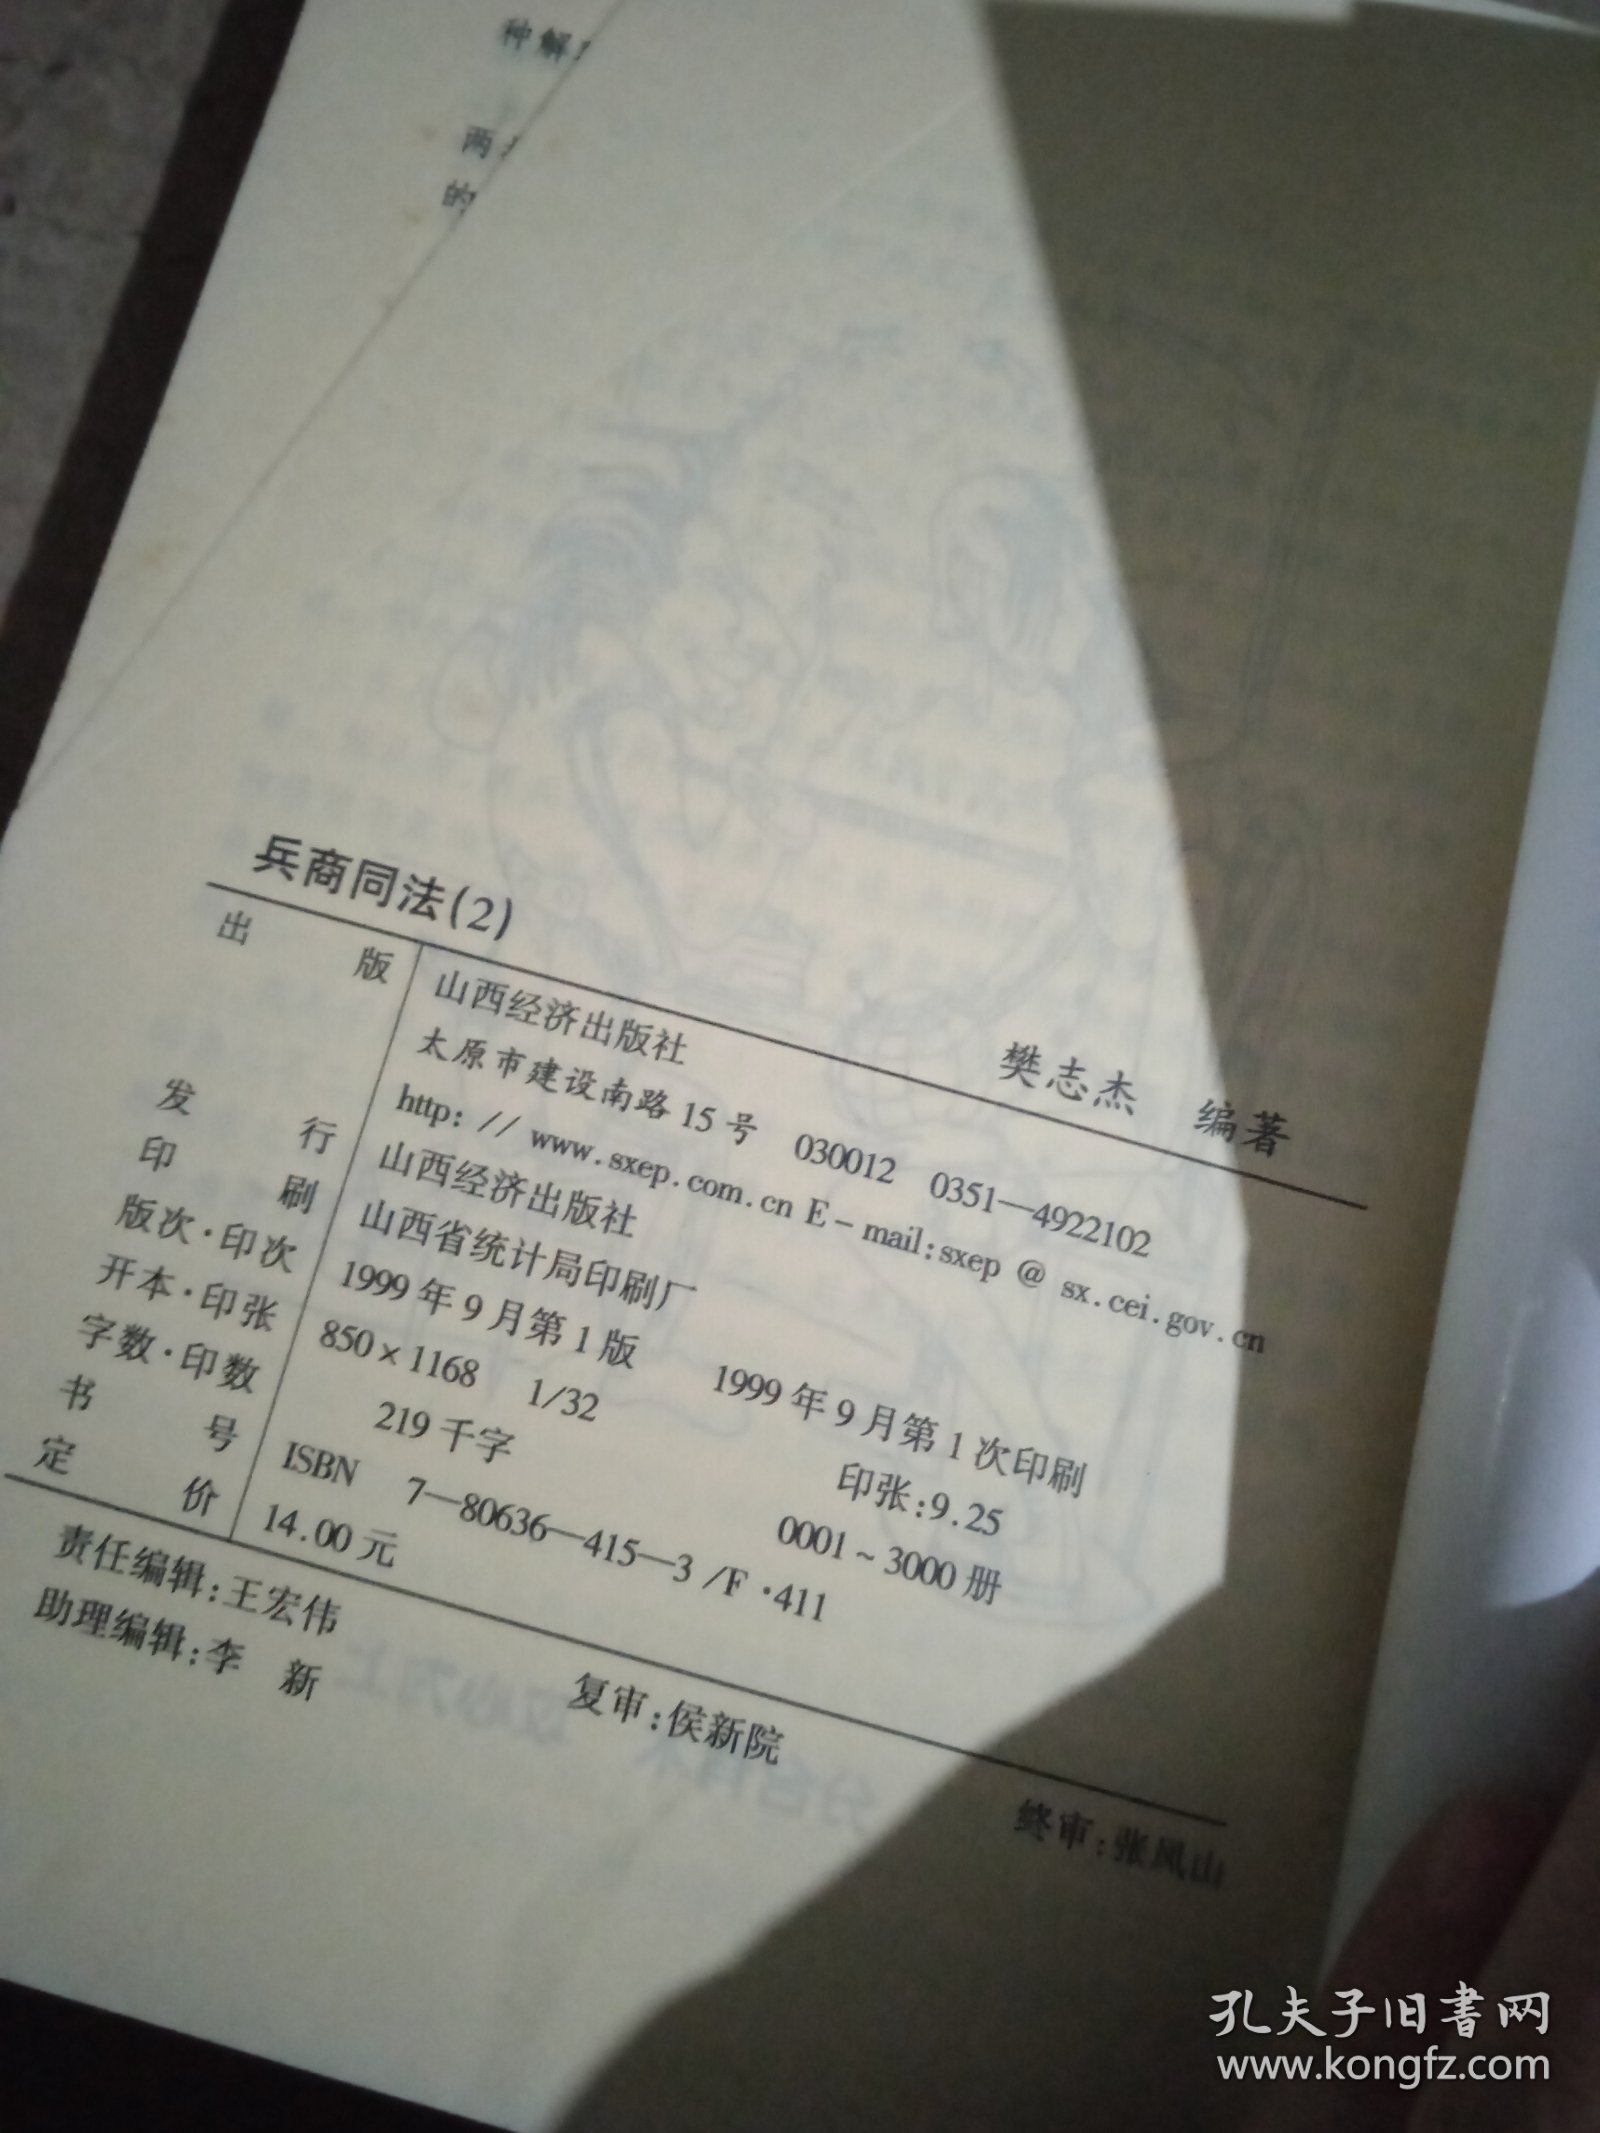 种解
两
的
兵商同法(2)
樊志杰 编著
出版 山西经济出版社
太原市建设南路15号 030012 0351—4922102
http: // www.sxep.com.cn E-mail:sxep @ sx.cei.gov.cn
发行 山西经济出版社
印刷 山西省统计局印刷厂
版次·印次 1999年9月第1版 1999年9月第1次印刷
开本·印张 850×1168 1/32 印张:9.25
字数·印数 219千字 0001~3000册
书号 ISBN 7—80636—415—3 /F·411
定价 14.00元
责任编辑:王宏伟 复审:侯新院 终审:张凤山
助理编辑:李 新
孔夫子旧书网
www.kongfz.com